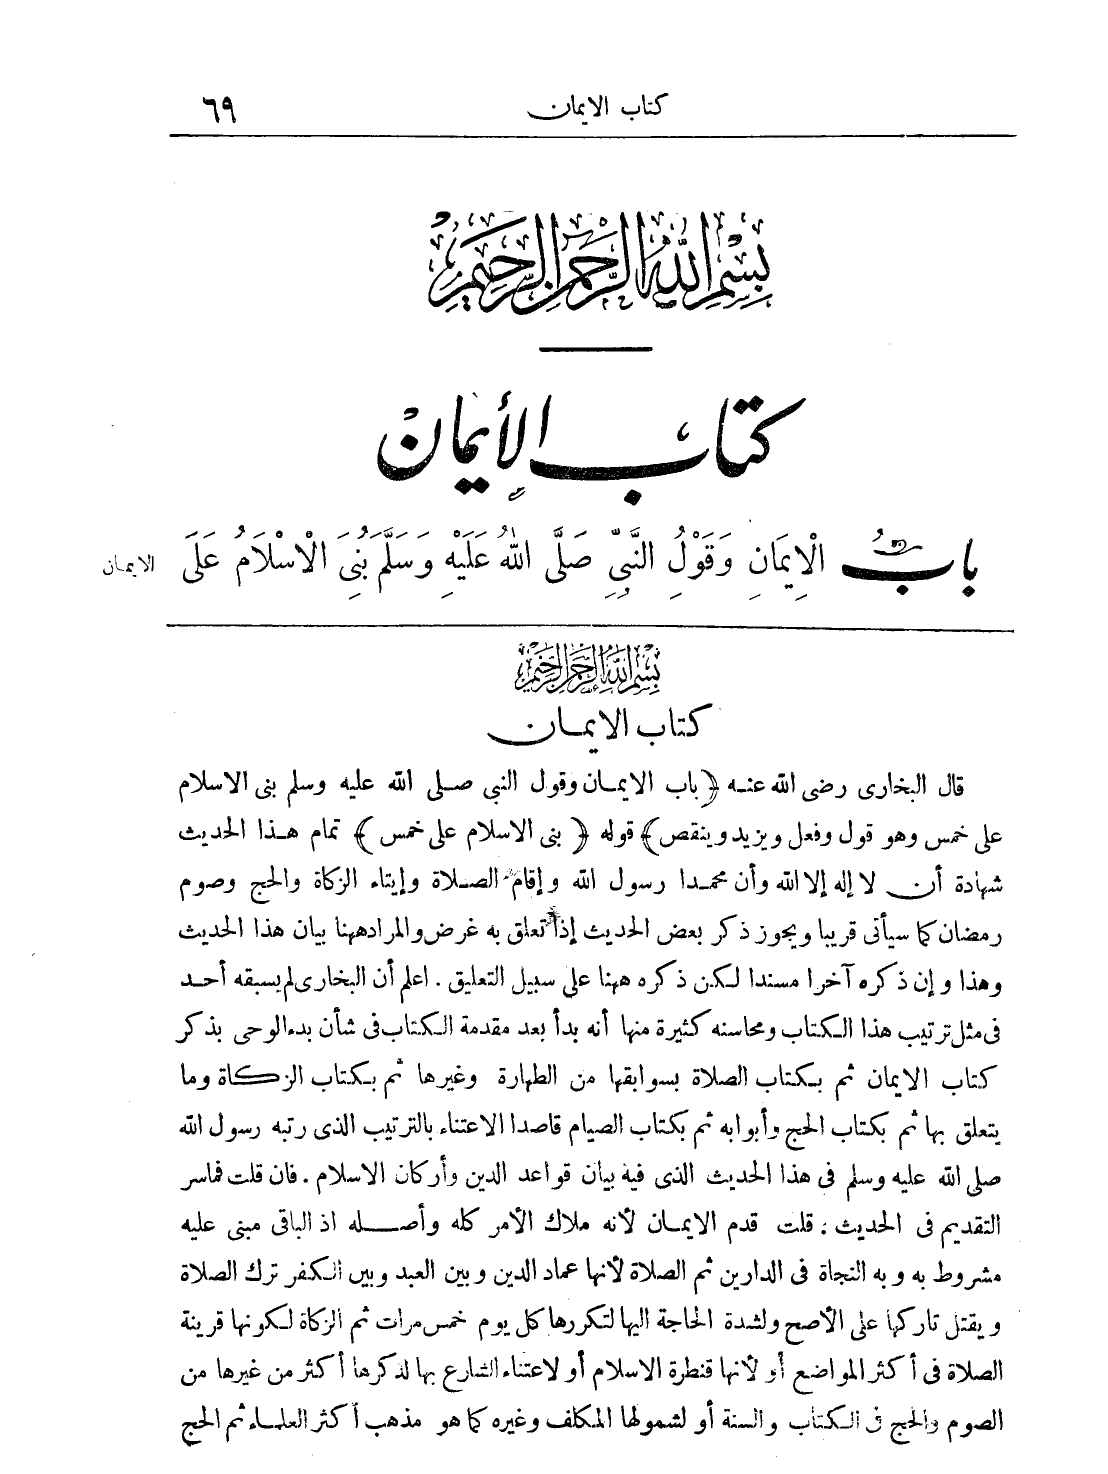 كتاب الايمان ٦٩
بِسْمِ اللهِ الرَّحْمَنِ الرَّحِيمِ
كتاب الإيمان
بابُ الْإِيمَانِ وَقَوْلُ النَّبِيِّ صَلَّى اللهُ عَلَيْهِ وَسَلَّمَ بُنِىَ الْاسْلَامُ عَلَى
الايمان
بسم الله الرحمن الرحيم
كتاب الايمان
قال البخارى رضى الله عنه ﴿باب الايمان وقول النبي صلى الله عليه وسلم بنى الاسلام
على خمس وهو قول وفعل ويزيد وينقص﴾ قوله ﴿ بنى الاسلام على خمس ﴾ تمام هذا الحديث
شهادة أن لا إله إلا الله وأن محمدا رسول الله وإقام الصلاة وإيتاء الزكاة والحج وصوم
رمضان كما سيأتى قريبا ويجوز ذكر بعض الحديث إذا تعلق به غرض والمراد ههنا بيان هذا الحديث
وهذا وإن ذكره آخرا مسندا لكن ذكره ههنا على سبيل التعليق . اعلم أن البخارى لم يسبقه أحد
فى مثل ترتيب هذا الكتاب ومحاسنه كثيرة منها أنه بدأ بعد مقدمة الكتاب فى شأن بدء الوحى بذكر
كتاب الايمان ثم بكتاب الصلاة بسوابقها من الطهارة وغيرها ثم بكتاب الزكاة وما
يتعلق بها ثم بكتاب الحج وأبوابه ثم بكتاب الصيام قاصدا الاعتناء بالترتيب الذى رتبه رسول الله
صلى الله عليه وسلم فى هذا الحديث الذى فيه بيان قواعد الدين وأركان الاسلام . فان قلت فما سر
التقديم فى الحديث : قلت قدم الايمان لأنه ملاك الأمر كله وأصله اذ الباقى مبنى عليه
مشروط به وبه النجاة فى الدارين ثم الصلاة لأنها عماد الدين وبين العبد وبين الكفر ترك الصلاة
ويقتل تاركها على الأصح ولشدة الحاجة اليها لتكررها كل يوم خمس مرات ثم الزكاة لكونها قرينة
الصلاة فى أكثر المواضع أو لأنها قنطرة الاسلام أو لاعتناء الشارع بها لذكرها أكثر من غيرها من
الصوم والحج فى الكتاب والسنة أو لشمولها المكلف وغيره كما هو مذهب أكثر العلماء ثم الحج